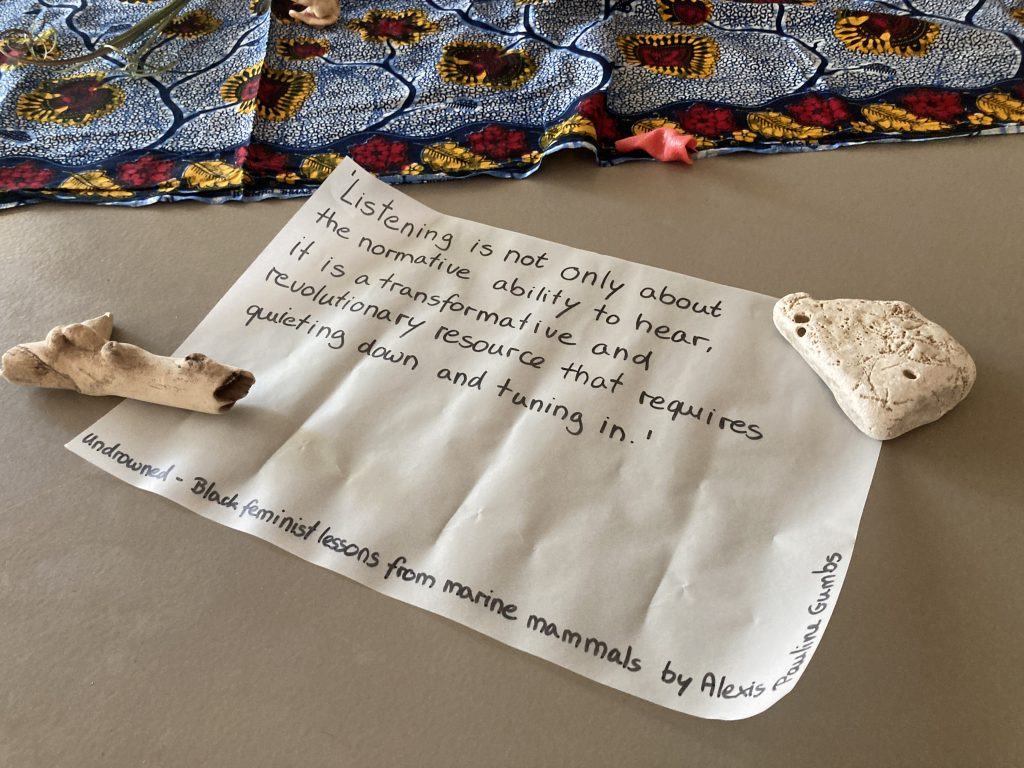 'Listening is not only about
the normative ability to hear,
it is a transformative and
revolutionary resource that requires
quieting down and tuning in.'
Undrowned - Black feminist lessons from marine mammals by Alexis
Pauline Gumbs